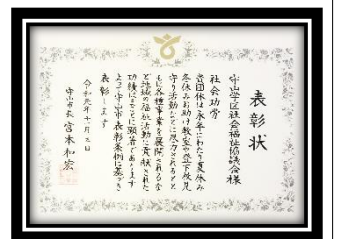 表彰状
守山学区社会福祉協議会様
社会功労
貴団体は永年にわたり夏休み
冬休みお助け教室や登下校見
守り活動などに尽力されるとと
もに各種事業を展開されるな
ど地域の福祉活動に貢献された
功績はまことに顕著であります
よって守山市表彰条例に基づき
表彰します
令和元年十一月三日
守山市長 宮本和宏